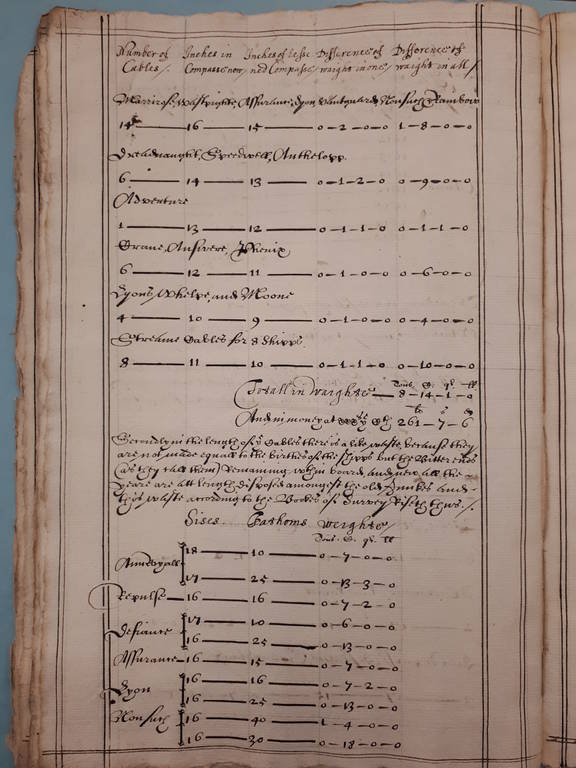 Number of Inches in Inches of lesse Difference of Difference of
Cables /. Compasse now ned Compasse waight in one, waight in all /.
Marriross, Wastspight, Assurance, Lyon, Vantguard, Nonsuch, Rainbow
14 — 16 — 15 — 0–2–0–0 1–8–0–0
Dreadnaught, Speedwell, Anthelopp.
6 — 14 — 13 — 0–1–2–0 0–9–0–0
Adventure
1 — 13 — 12 — 0–1–1–0 0–1–1–0
Crane, Answere, Phenix
6 — 12 — 11 — 0–1–0–0 0–6–0–0
Lyons Whelpe, and Moone
4 — 10 — 9 — 0–1–0–0 0–4–0–0
Streame Cables for 8 Shipps.
8 — 11 — 10 — 0–1–1–0 0–10–0–0
Tons. C. qt. ll
Totall in Waighte — 8–14–1–0
li s d
And in money at xxxs ye C 261–7–6
Secondly in the length of ye Cables there is a like waste, because they
are not made equall to the birthes of the Shipps but the Bitter ends
(as they call them) Remaining within board, and new all the
yeare are att length disposed amongest the old Junkes and
this waste according to the Bookes of Survey riseth thus. /.
Sises. Fathoms Weighte /
Tons. C. qt. ll
Anneroyall 18 — 10 — 0–7–0–0
17 — 25 — 0–13–3–0
Repulse — 16 — 16 — 0–7–2–0
Defiance 17 — 10 — 0–6–0–0
16 — 25 — 0–13–0–0
Assurance — 16 — 15 — 0–7–0–0
Lyon 16 — 16 — 0–7–2–0
16 — 25 — 0–13–0–0
Nonsuch 16 — 40 — 1–4–0–0
16 — 30 — 0–18–0–0